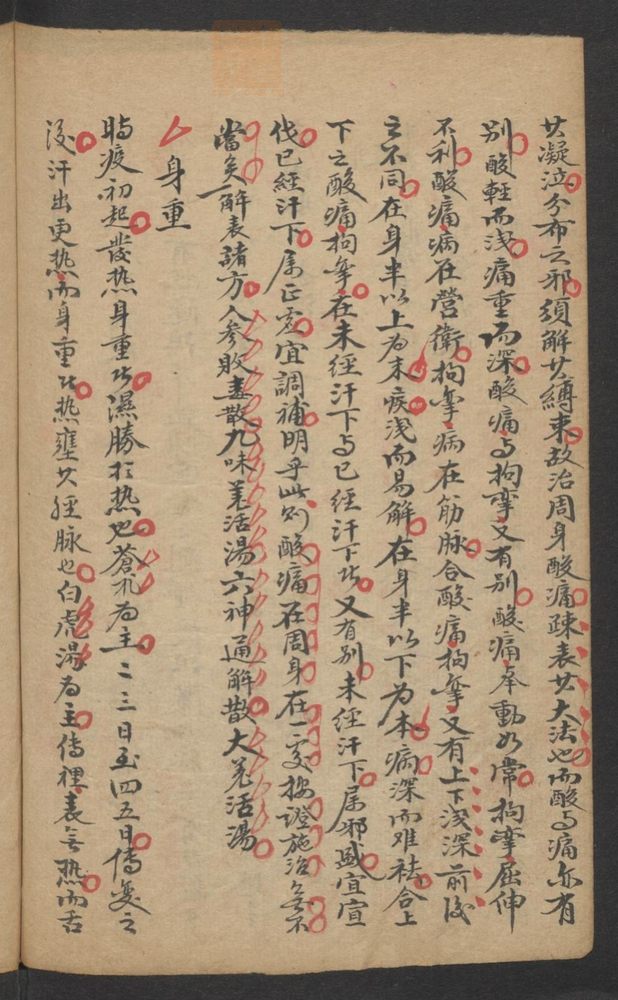 其凝泣分布之邪須解其縛束故治周身酸痛疎表其大法也而酸与痛亦有
別酸輕而浅痛重而深酸痛与拘攣又有別酸痛举動如常拘攣屈伸
不利酸痛病在營衛拘攣病在筋脉合酸痛拘攣又有上下浅深前後
之不同在身半以上为末疾浅而易解在身半以下为本病深而难祛合上
下之酸痛拘攣在未經汗下与已經汗下者又有別未經汗下属邪盛宜宣
伐已經汗下属正虚宜調補明乎此则酸痛在周身在一處按證施治無不
當矣解表諸方人參敗毒散九味羌活湯六神通解散大羌活湯
身重
時疫初起發热身重者濕勝於热也蒼朮为主二三日至四五日傳变之
後汗出更热而身重者热壅其經脉也白虎湯为主傳裡表無热而舌